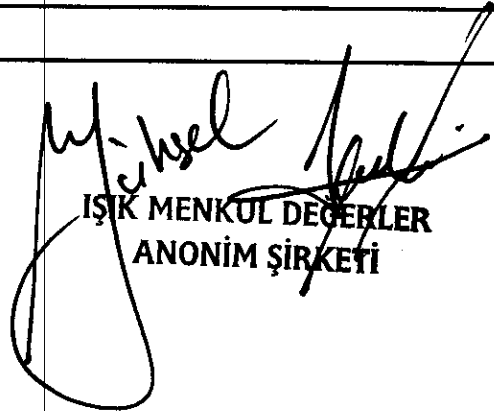 Yüksel
IŞIK MENKUL DEĞERLER
ANONİM ŞİRKETİ